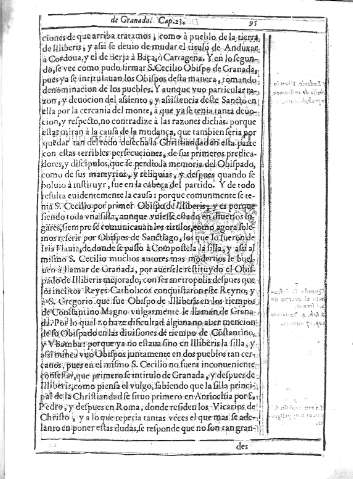 de Granada. Cap. 23. 95
ciones de que arriba tratamos, como à pueblo de la tierra
de Illiberis, y assi se deuio de mudar el titulo de Anduxar
a Cordoua, y el de berja à Baça, ò Carragena. Y en lo segun-
do, se vee como pudo firmar S. Cecilio Obispo de Granada,
pues ya se intitulauan los Obispos desta manera, tomando
denominacion de los pueblos. Y aunque vuo particular ra-
zon, y deuocion del assiento, y assistencia deste Sancto en
ella por la cercania del monte, à que ya se tenia tanta deuo-
cion, y respecto, no contradize à las razones dichas porque
ellas miran à la causa de la mudança, que tambien seria por
quedar tan del todo desecha la Christiandad en esta parte
con estas terribles persecuciones, de sus primeros predica-
dores, y discipulos, que se perdio la memoria del Obispado,
como de sus martyrios, y reliquias, y despues quando se
boluio à instituyr, fue en la cabeça del partido. Y de todo
resulta euidentemente la causa: porque comunmente se te-
nia S. Cecilio por primer Obispo de Illiberis, y es porque
siendo toda vna silla, aunque vuiesse estado en diuersos lu-
gares, siempre se comunicauan los titulos, como agora sole-
mos referir por Obispos de Sanctiago, los que lo fueron de
Iria Flauia, de donde se passo à Compostela la silla, y assi al
mismo S. Cecilio muchos autores mas modernos le buel-
uen à llamar de Granada, por auerse restituydo el Obis-
pado de Illiberis mejorado, con ser metropolis despues que
los inclitos Reyes Catholicos conquistaron este Reyno, y
à S. Gregorio que fue Obispo de Illiberis en los tiempos
de Constantino Magno vulgarmente le llaman de Grana-
da. Por lo qual no haze dificultad alguna no auer mencion
deste Obispado en las diuisiones de tiempo de Constantino,
y Vbamba: porque ya no estaua sino en Illiberis la silla, y
assi mesmo vuo Obispos juntamente en dos pueblos tan cer-
canos, pues en el mismo S. Cecilio no fuera inconueniente
confessar, que primero se intitulo de Granada, y despues de
Illiberis, como piensa el vulgo, sabiendo que la silla princi-
pal de la Christiandad se situo primero en Antiochia por S.
Pedro, y despues en Roma, donde residen los Vicarios de
Christo, y a lo que repetia tantas vezes el que mas se ade-
lanto en poner estas dudas, se responde que no son tan gran-
des